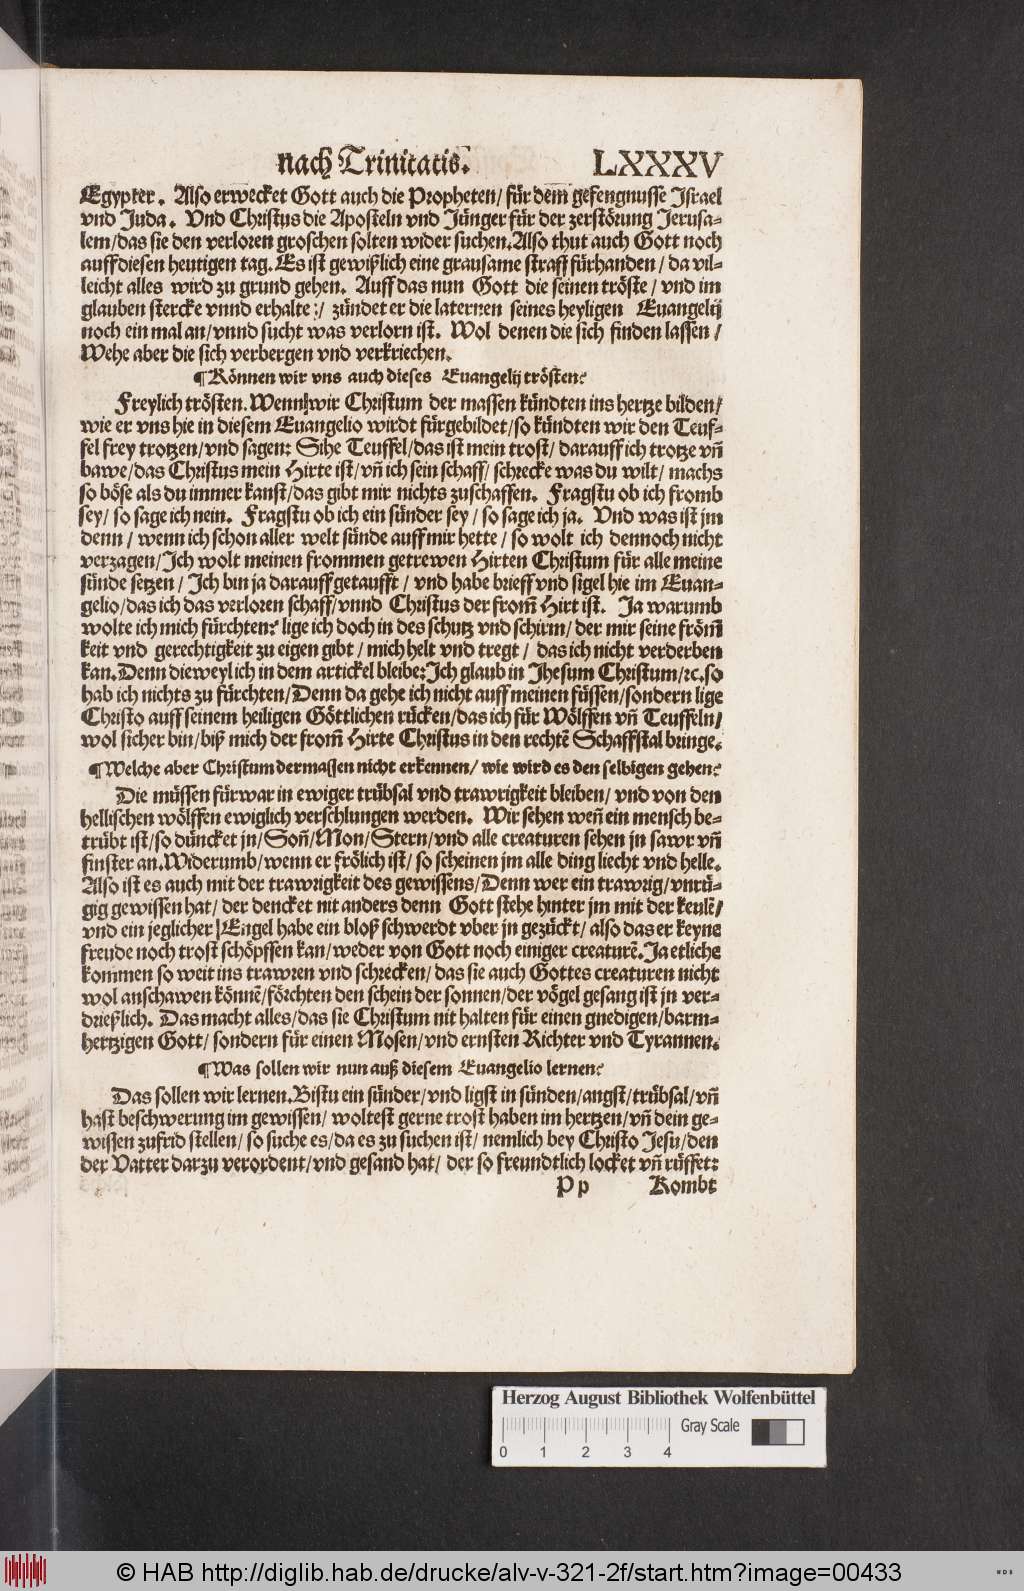 nach Trinitatis. LXXXV
Egypter. Also erwecket Gott auch die Propheten/ für dem gefengnusse Israel
vnd Juda. Vnd Christus die Aposteln vnd Jünger für der zerstörung Jerusa-
lem/das sie den verloren groschen solten wider suchen. Also thut auch Gott noch
auff diesen heutigen tag. Es ist gewißlich eine grausame straff fürhanden/ da vil-
leicht alles wird zu grund gehen. Auff das nun Gott die seinen tröste/ vnd im
glauben stercke vnnd erhalte:/ zündet er die laternen seines heyligen Euangelij
noch ein mal an/vnnd sucht was verlorn ist. Wol denen die sich finden lassen/
Wehe aber die sich verbergen vnd verkriechen.
¶Können wir vns auch dieses Euangelij trösten?
Freylich trösten. Wenn wir Christum der massen kündten ins hertze bilden/
wie er vns hie in diesem Euangelio wirdt fürgebildet/so kündten wir den Teuf-
fel frey trotzen/vnd sagen: Sihe Teuffel/das ist mein trost/ darauff ich trotze vñ
bawe/das Christus mein Hirte ist/vñ ich sein schaff/ schrecke was du wilt/ machs
so böse als du immer kanst/das gibt mir nichts zuschaffen. Fragstu ob ich fromb
sey/ so sage ich nein. Fragstu ob ich ein sünder sey/ so sage ich ja. Vnd was ist jm
denn/ wenn ich schon aller welt sünde auff mir hette/ so wolt ich dennoch nicht
verzagen/Ich wolt meinen frommen getrewen Hirten Christum für alle meine
sünde setzen/ Ich bin ja darauff getaufft/ vnd habe brieff vnd sigel hie im Euan-
gelio/das ich das verloren schaff/vnnd Christus der from̃ Hirt ist. Ja warumb
wolte ich mich fürchten? lige ich doch in des schutz vnd schirm/ der mir seine fröm̃
keit vnd gerechtigkeit zu eigen gibt/ mich helt vnd tregt/ das ich nicht verderben
kan. Denn dieweyl ich in dem artickel bleibe: Ich glaub in Jhesum Christum/ꝛc. so
hab ich nichts zu fürchten/Denn da gehe ich nicht auff meinen füssen/sondern lige
Christo auff seinem heiligen Göttlichen rücken/das ich für Wölffen vñ Teuffeln/
wol sicher bin/biß mich der from̃ Hirte Christus in den rechtẽ Schaffstal bringe.
¶Welche aber Christum dermassen nicht erkennen/ wie wird es den selbigen gehen?
Die müssen fürwar in ewiger trübsal vnd trawrigkeit bleiben/ vnd von den
hellischen wölffen ewiglich verschlungen werden. Wir sehen weñ ein mensch be-
trübt ist/so düncket jn/Soñ/Mon/Stern/vnd alle creaturen sehen jn sawr vñ
finster an. Widerumb/wenn er frölich ist/ so scheinen jm alle ding liecht vnd helle.
Also ist es auch mit der trawrigkeit des gewissens/Denn wer ein trawrig/vnrü-
gig gewissen hat/ der dencket nit anders denn Gott stehe hinter jm mit der keulẽ/
vnd ein jeglicher Engel habe ein bloß schwerdt vber jn gezückt/ also das er keyne
freude noch trost schöpffen kan/weder von Gott noch einiger creaturẽ. Ja etliche
kommen so weit ins trawren vnd schrecken/ das sie auch Gottes creaturen nicht
wol anschawen könnẽ/förchten den schein der sonnen/der vögel gesang ist jn ver-
drießlich. Das macht alles/das sie Christum nit halten für einen gnedigen/barm-
hertzigen Gott/ sondern für einen Mosen/vnd ernsten Richter vnd Tyrannen.
¶Was sollen wir nun auß diesem Euangelio lernen?
Das sollen wir lernen. Bistu ein sünder/vnd ligst in sünden/angst/trübsal/vñ
hast beschwerung im gewissen/ woltest gerne trost haben im hertzen/vñ dein ge-
wissen zufrid stellen/ so suche es/da es zu suchen ist/ nemlich bey Christo Jesu/den
der Vatter darzu verordent/vnd gesand hat/ der so freundtlich locket vñ rüffet:
Pp Kombt
Herzog August Bibliothek Wolfenbüttel
Gray Scale
0 1 2 3 4
© HAB http://diglib.hab.de/drucke/alv-v-321-2f/start.htm?image=00433